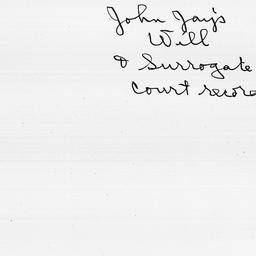 John Jay's
Will
& Surrogate
Court record